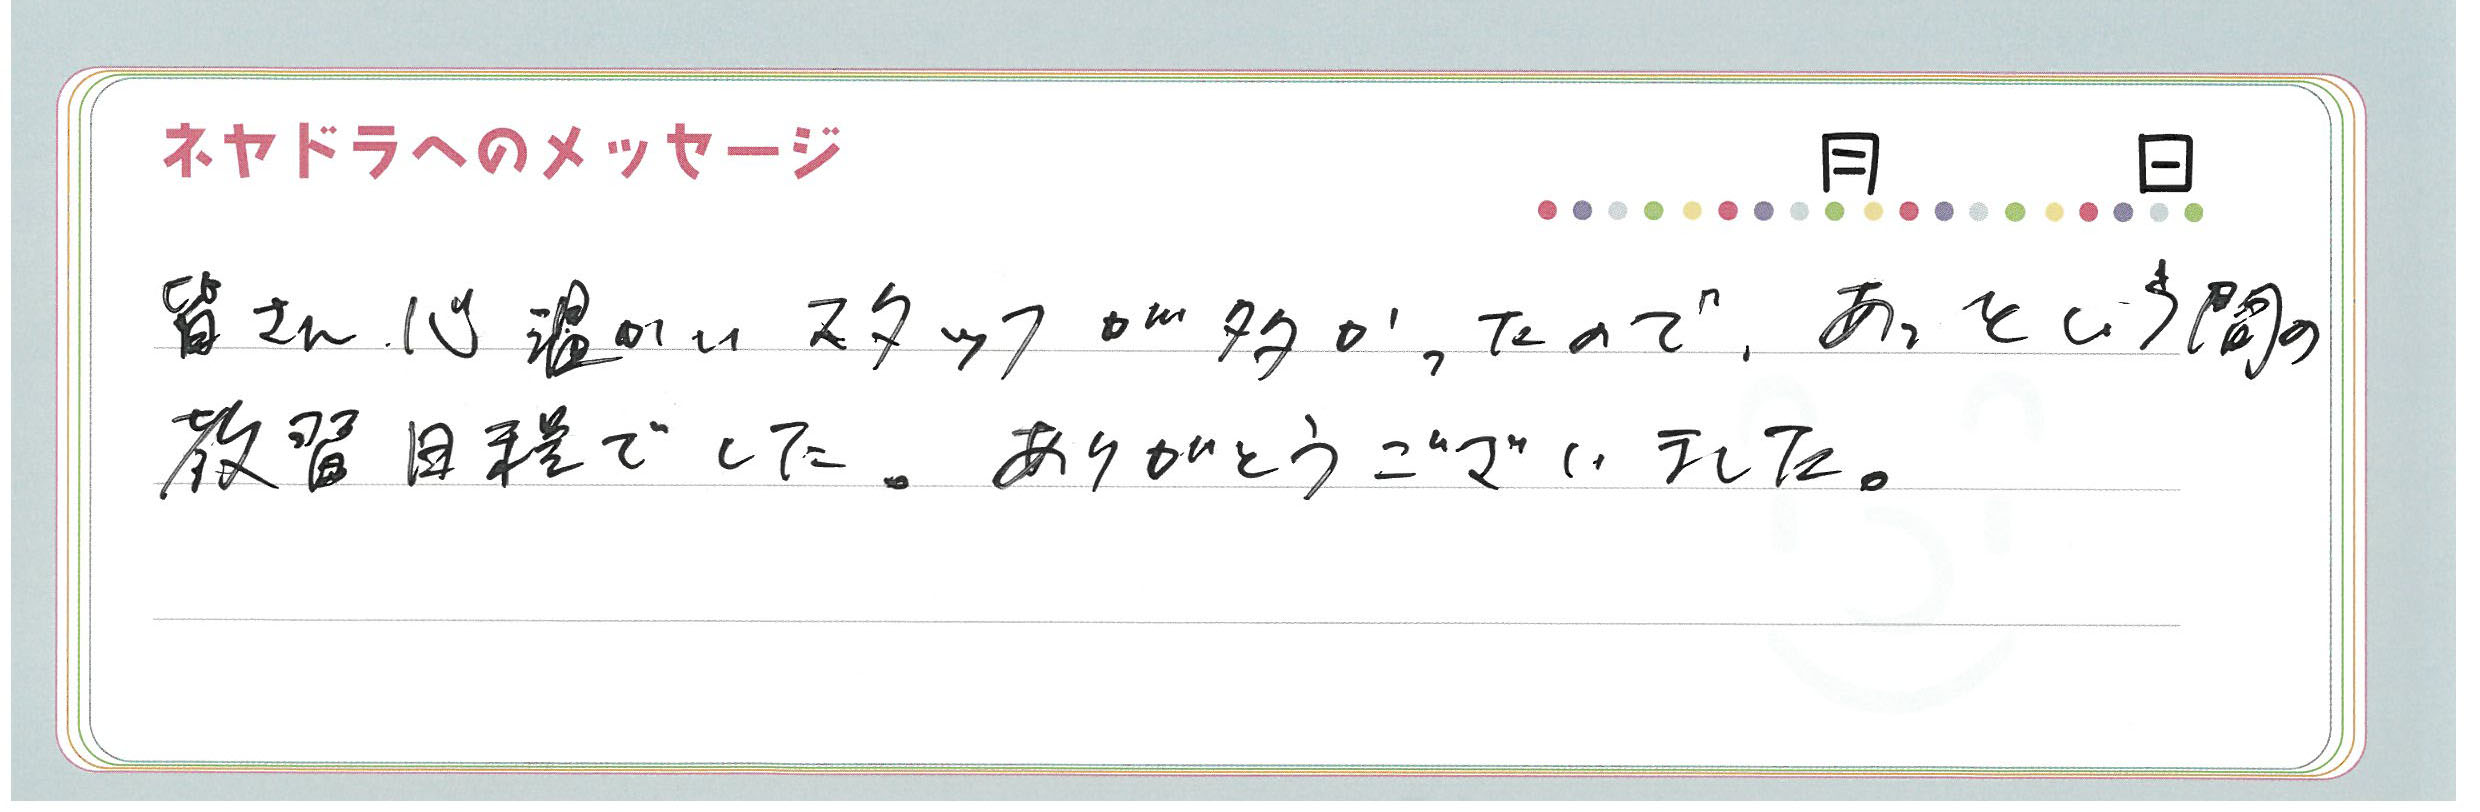 ネヤドラへのメッセージ
月 日
皆さん心温かいスタッフが多かったので、あっという間の
教習日程でした。ありがとうございました。